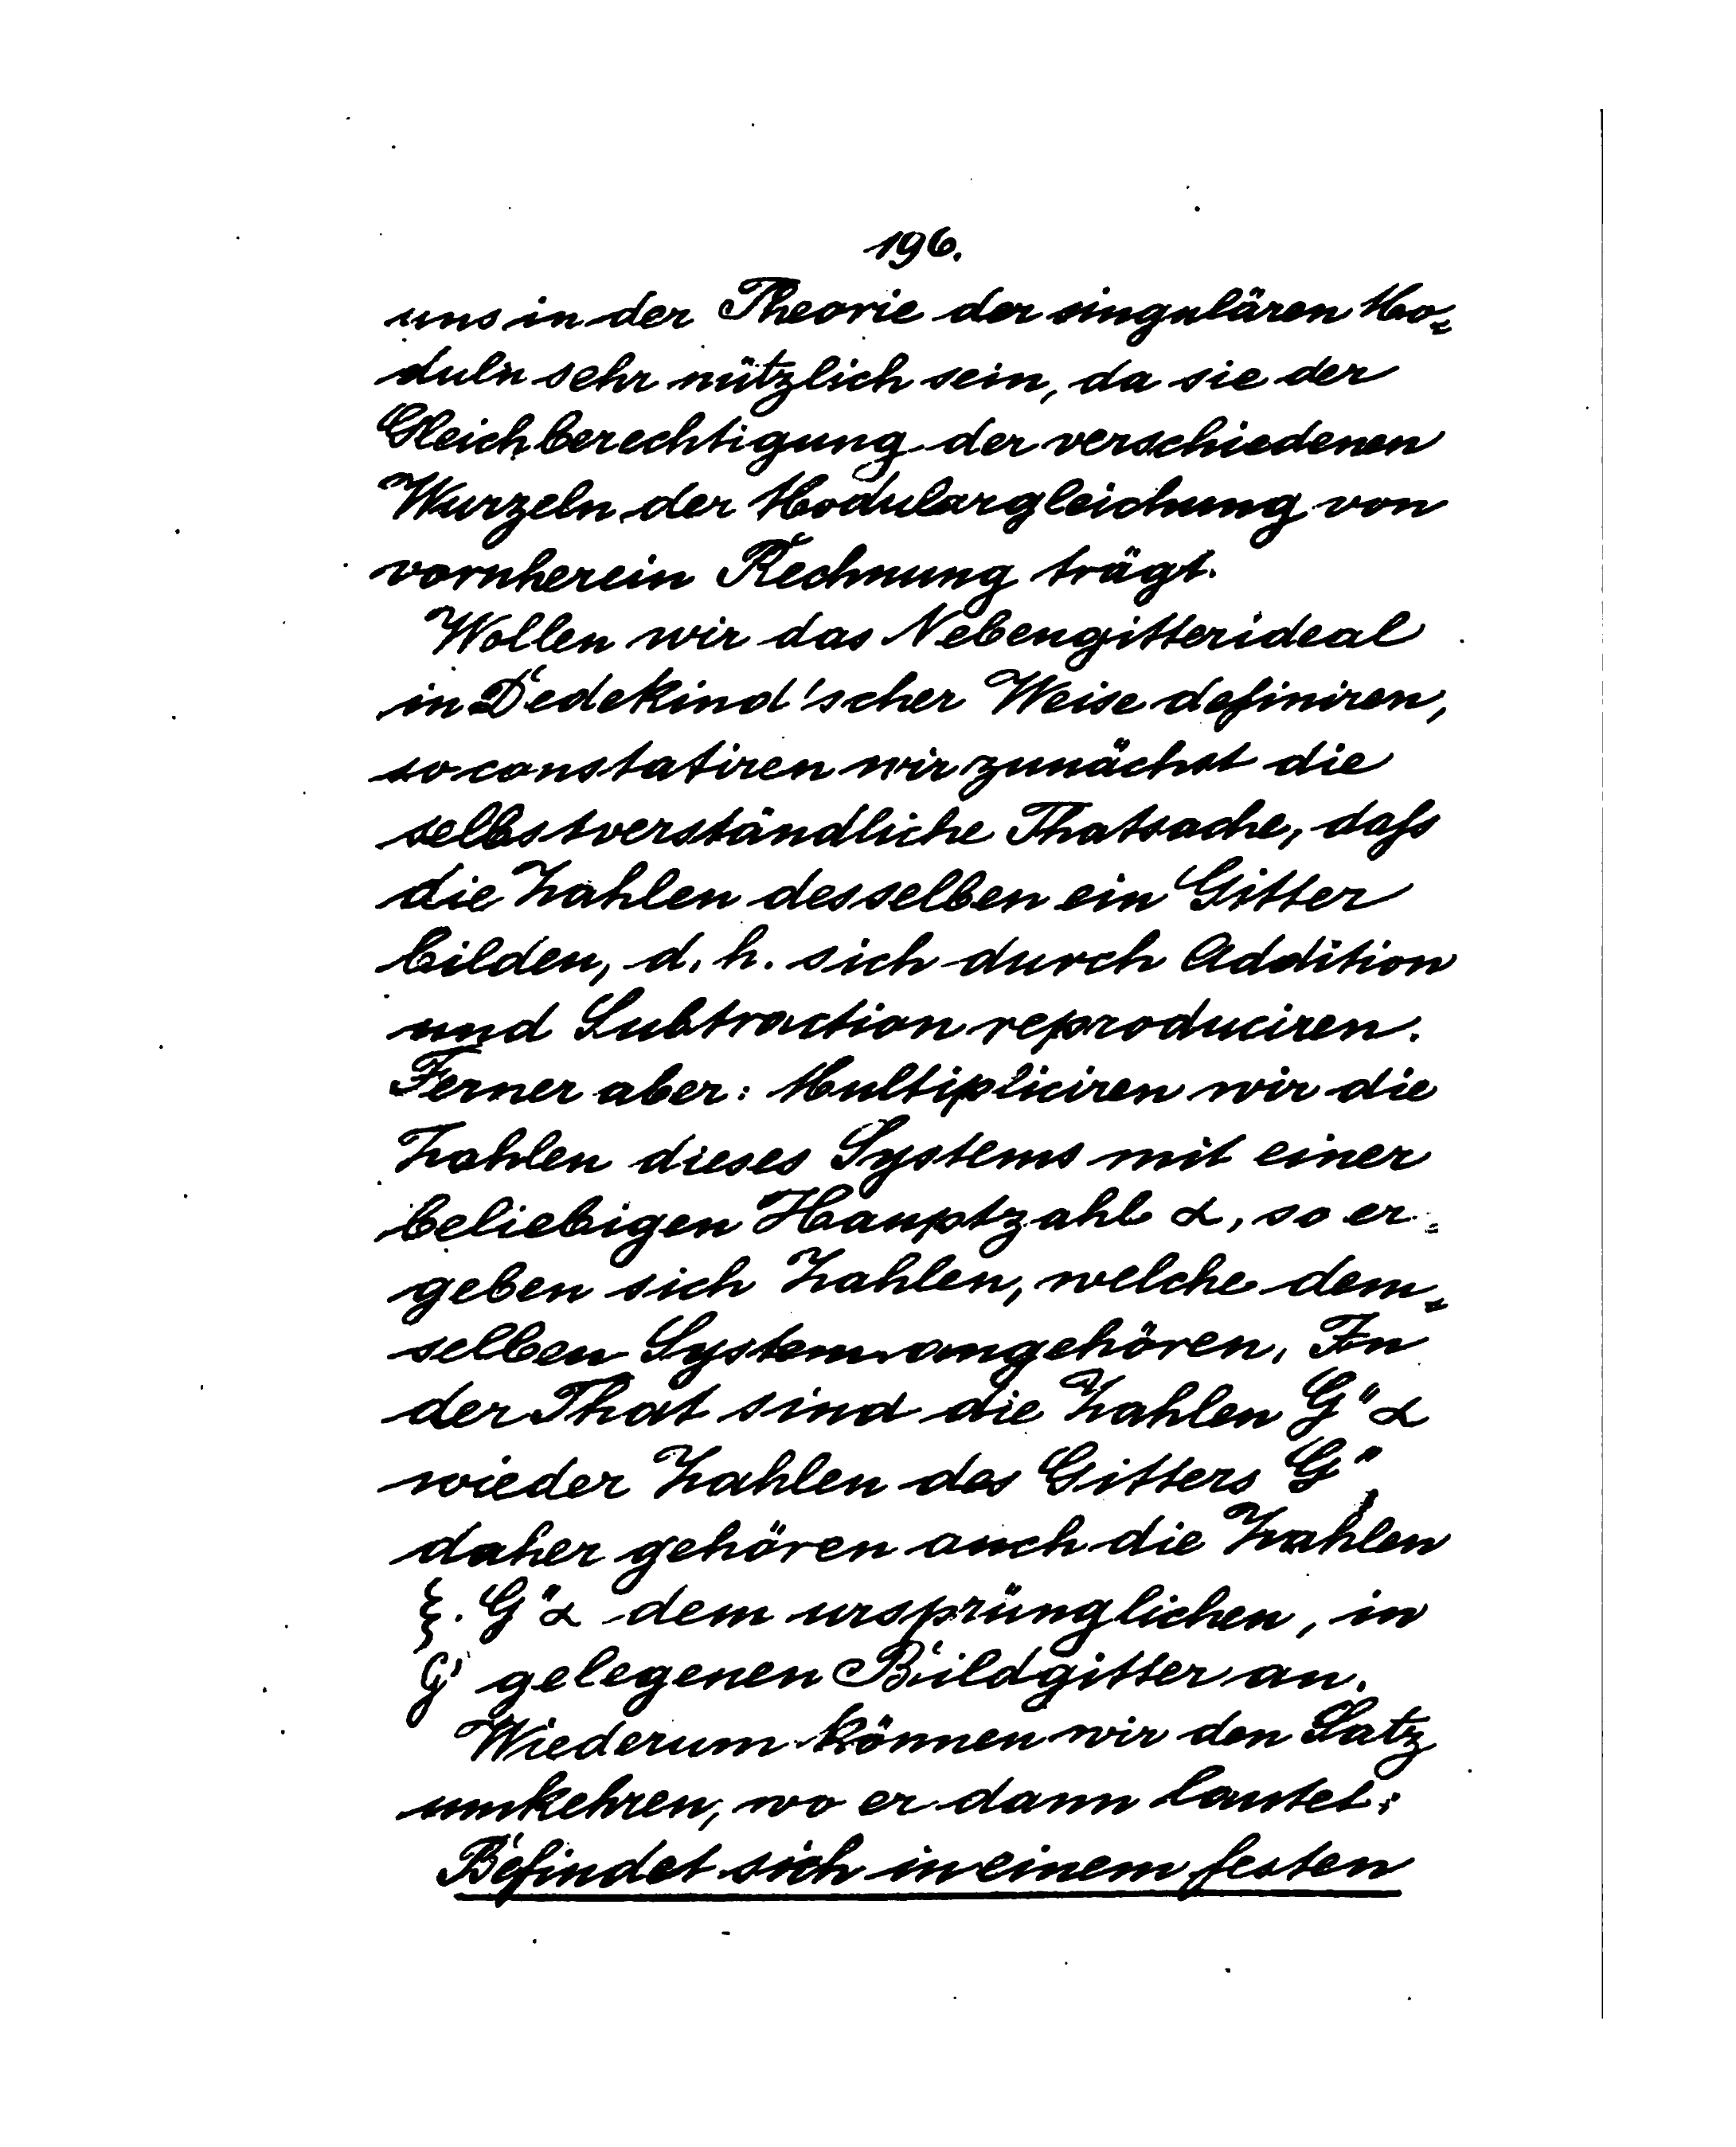 196.
uns in der Theorie der singulären Mo-
duln sehr nützlich sein, da sie der
Gleichberechtigung der verschiedenen
Wurzeln der Modulargleichung von
vornherein Rechnung trägt.
Wollen wir das Nebengitterideal
in Dedekind'scher Weise definiren,
so constatiren wir zunächst die
selbstverständliche Thatsache, daſs
die Zahlen desselben ein Gitter
bilden, d. h. sich durch Addition
und Subtraction reproduciren.
Ferner aber: Multipliciren wir die
Zahlen dieses Systems mit einer
beliebigen Hauptzahl α, so er-
geben sich Zahlen, welche dem-
selben System angehören. In
der That sind die Zahlen G"α
wieder Zahlen des Gitters G",
daher gehören auch die Zahlen
ξ. G"α dem ursprünglichen, in
G' gelegenen Bildgitter an.
Wiederum können wir den Satz
umkehren, wo er dann lautet:
Befindet sich in einem festen